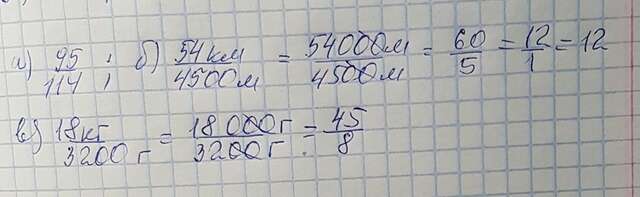 а) 95/114 ; б) 54км/4500м = 54000м/4500м = 60/5 = 12/1 = 12
в) 18кг/3200г = 18000г/3200г = 45/8